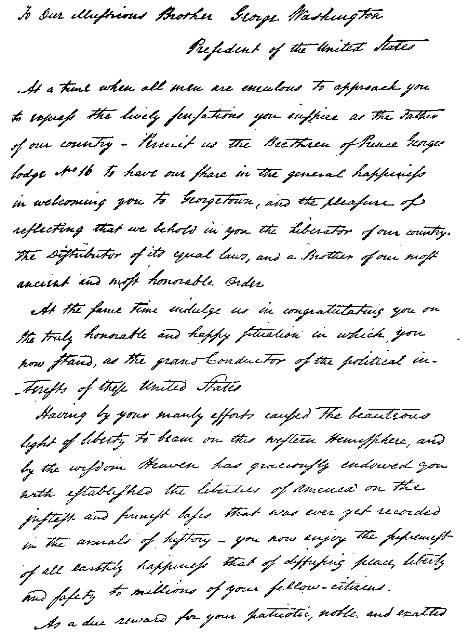 To Our illustrious Brother George Washington
President of the United States
At a time when all men are emulous to approach you
to express the lively sensations you inspire as the Father
of our country - Permit us the Brethren of Prince Georges
lodge No 16 to have our share in the general happiness
in welcoming you to Georgetown, and the pleasure of
reflecting that we behold in you the liberator of our country -
the distributor of its equal laws, and a Brother of our most
ancient and most honorable Order
At the same time indulge us in congratulating you on
the truly honorable and happy situation in which you
now stand, as the grand Conductor of the political in-
-terests of these United States
Having by your manly efforts caused the beauteous
light of liberty to beam on this western Hemisphere, and
by the wisdom Heaven has graciously endowed you
with established the liberties of America on the
justest and firmest basis that was ever yet recorded
in the annals of history - you now enjoy the supremest
of all earthly happiness that of diffusing peace, liberty
and safety to millions of your fellow-citizens.
As a due reward for your patriotic, noble and exalted